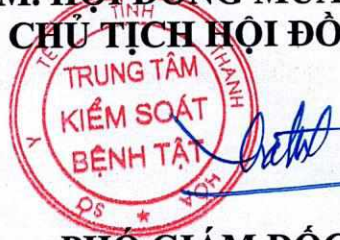 M. HỘI ĐỒNG MUA
CHỦ TỊCH HỘI ĐỒ
SỞ Y TẾ TỈNH THANH HÓA
TRUNG TÂM
KIỂM SOÁT
BỆNH TẬT
PHÓ GIÁM ĐỐC